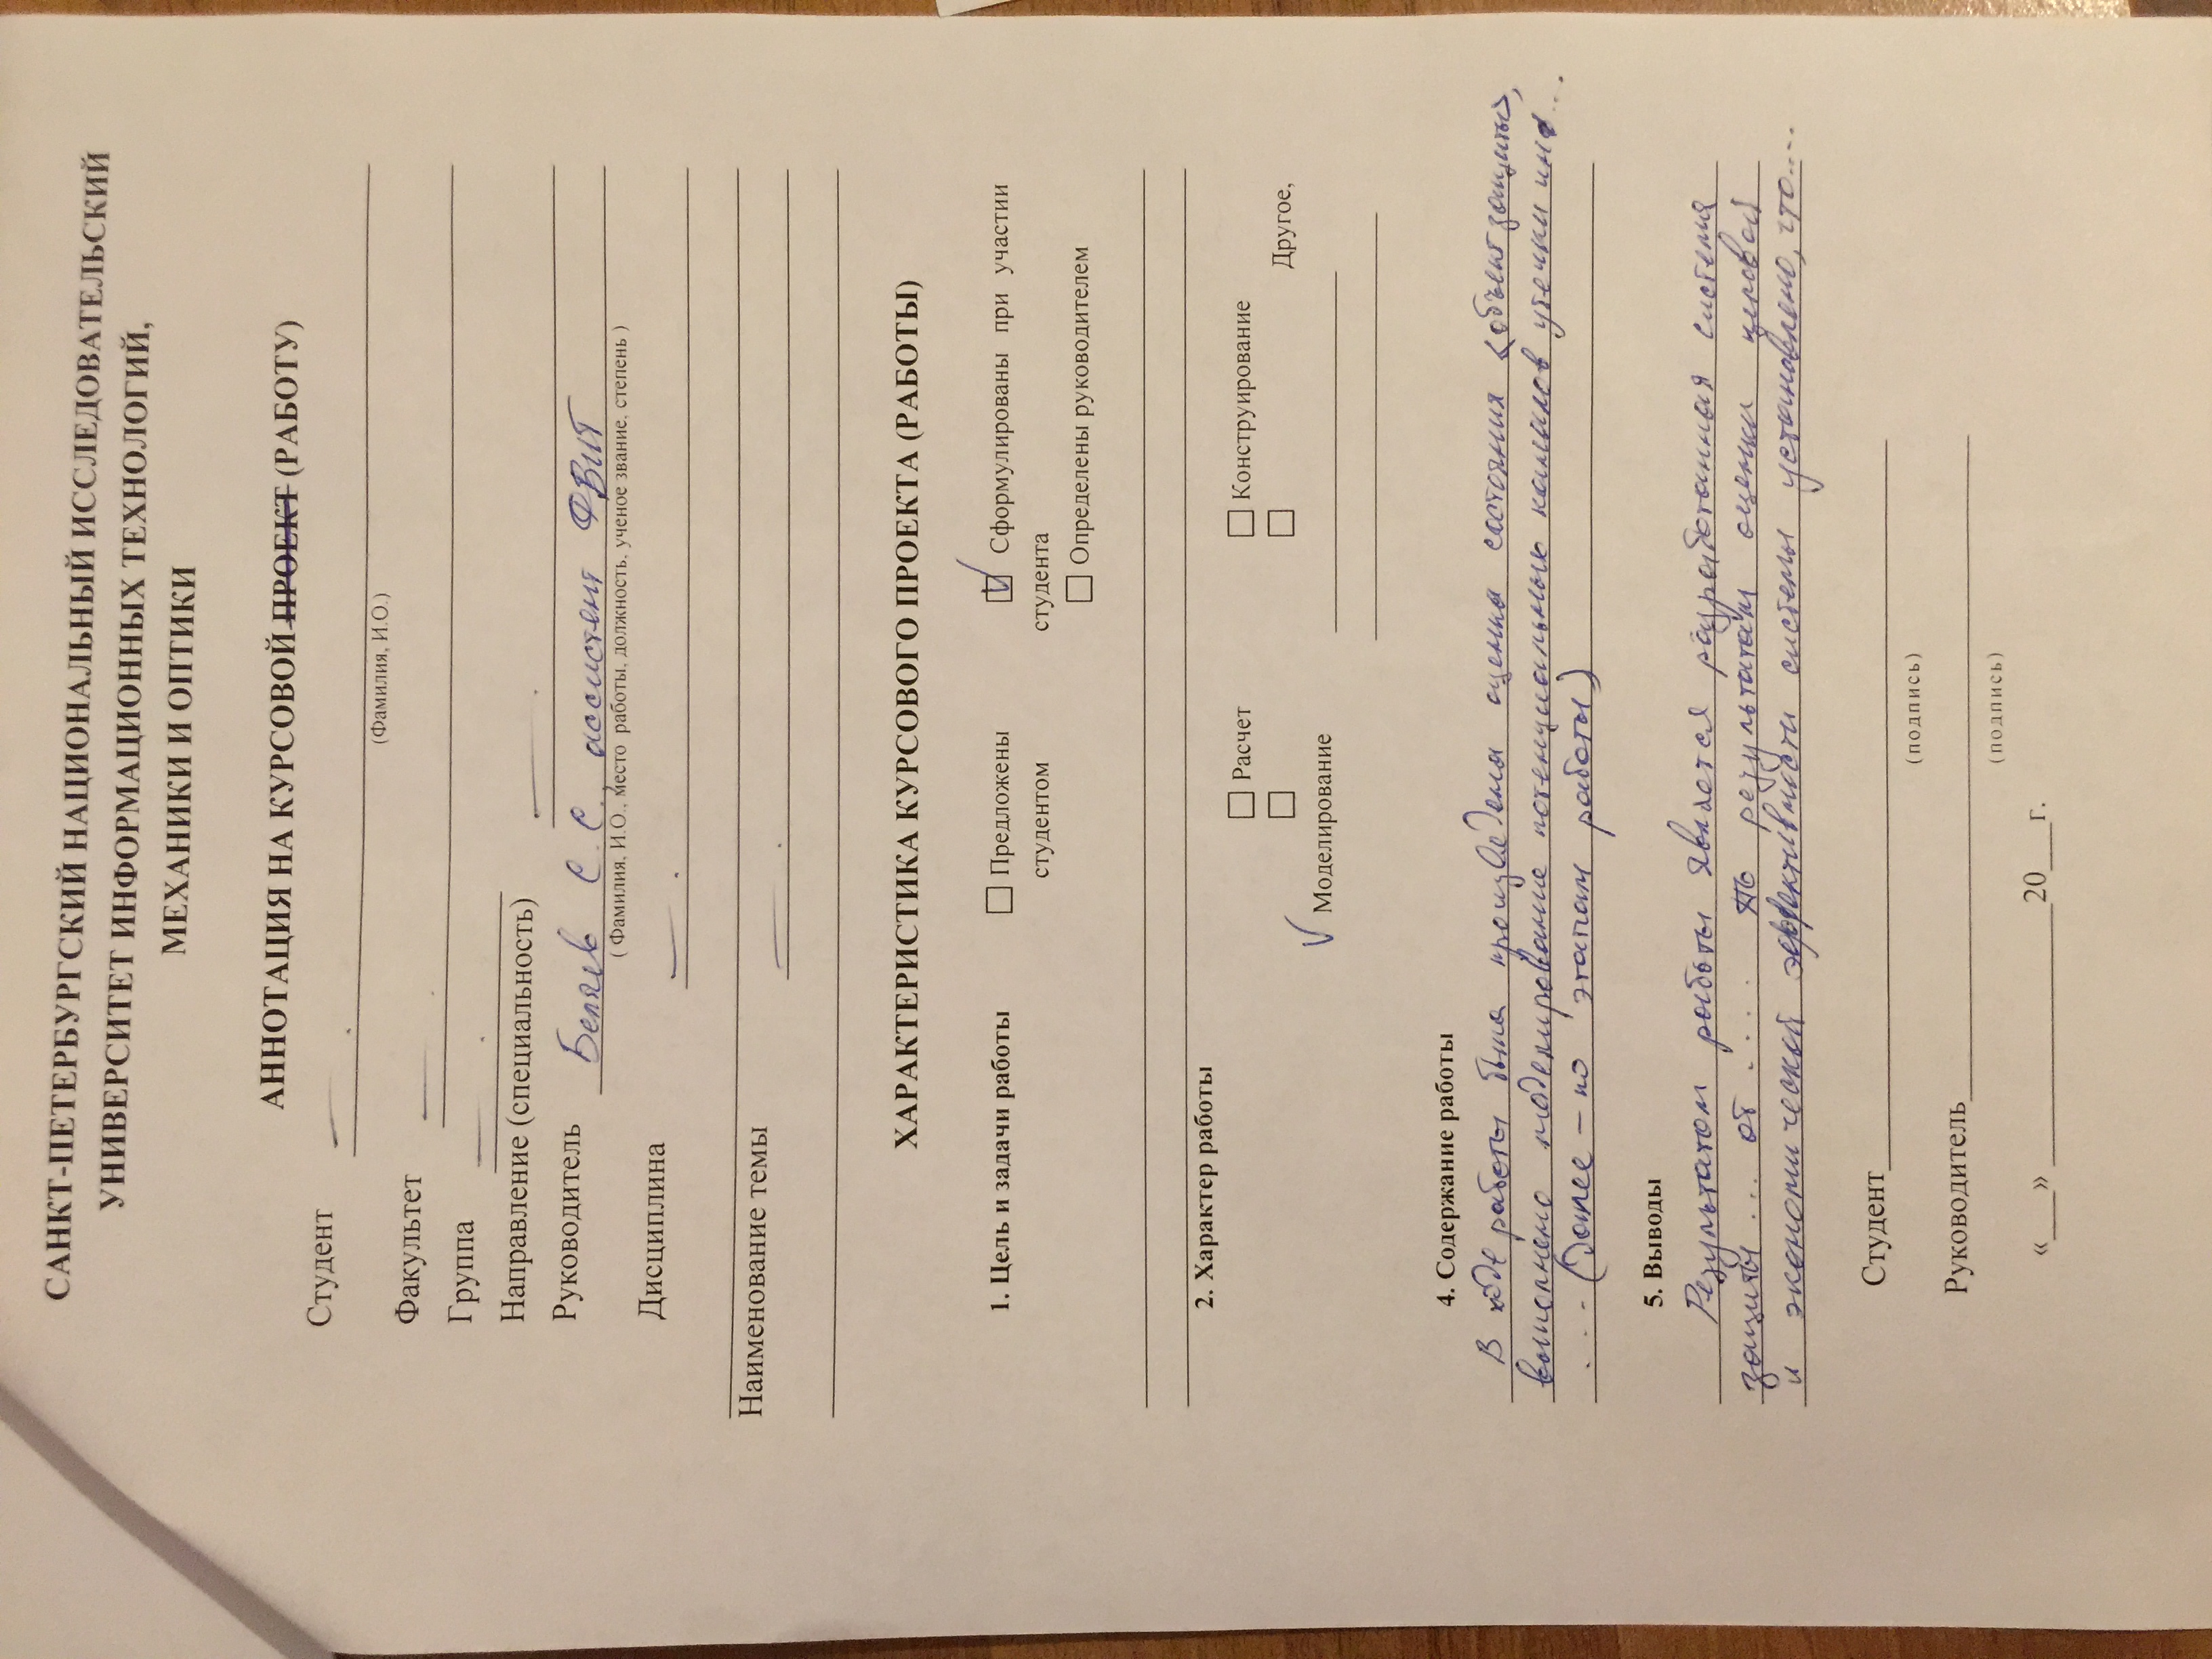 САНКТ-ПЕТЕРБУРГСКИЙ НАЦИОНАЛЬНЫЙ ИССЛЕДОВАТЕЛЬСКИЙ
УНИВЕРСИТЕТ ИНФОРМАЦИОННЫХ ТЕХНОЛОГИЙ,
МЕХАНИКИ И ОПТИКИ
АННОТАЦИЯ НА КУРСОВОЙ ПРОЕКТ (РАБОТУ)
Студент
(Фамилия, И.О.)
Факультет
Группа
Направление (специальность)
Руководитель Беляев С. С., ассистент ФБИТ
( Фамилия, И.О., место работы, должность, ученое звание, степень )
Дисциплина
Наименование темы
ХАРАКТЕРИСТИКА КУРСОВОГО ПРОЕКТА (РАБОТЫ)
1. Цель и задачи работы Предложены Сформулированы при участии
студентом студента
Определены руководителем
2. Характер работы
Расчет Конструирование
Другое,
Моделирование
4. Содержание работы
В ходе работы была произведена оценка состояния <объект защиты>,
выполнено моделирование потенциальных каналов утечки инф...
... (Далее – по этапам работы)
5. Выводы
Результатом работы является разработанная система
защиты ... от .... По результатам оценки целевой
и экономической эффективности системы установлено, что....
Студент
(подпись)
Руководитель
(подпись)
«___» ____________20___г.